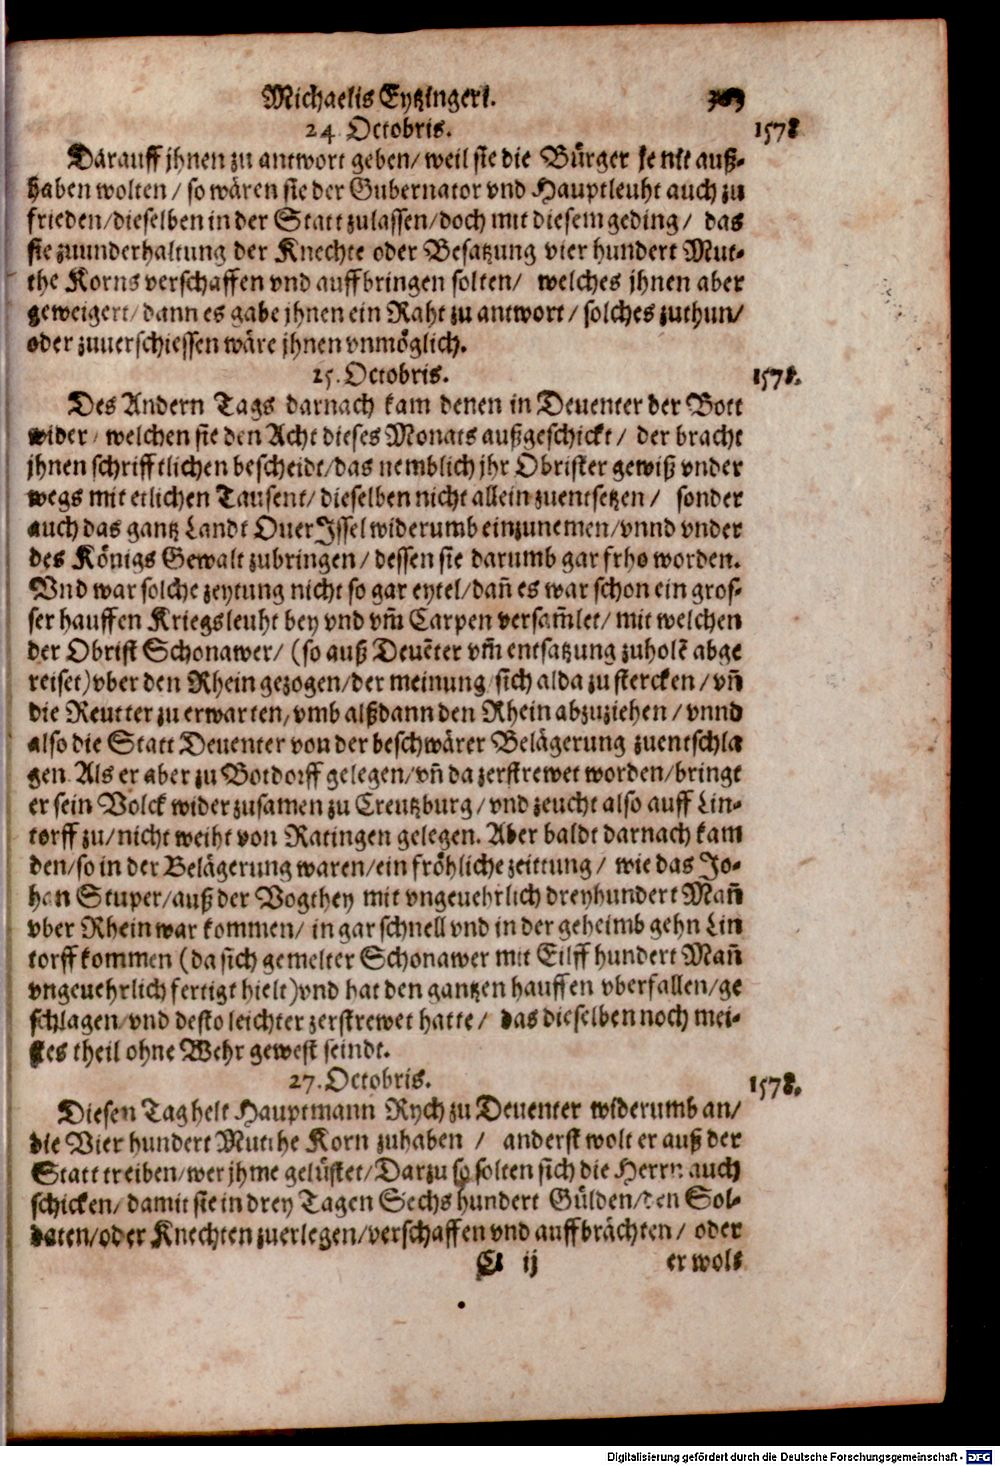 Michaelis Eytzingeri.
24 Octobris.
1578
Darauff jhnen zu antwort geben/ weil sie die Bürger je nit auß-
haben wolten / so wären sie der Gubernator vnd Hauptleuht auch zu
frieden/dieselben in der Statt zulassen/doch mit diesem geding/ das
sie zuunderhaltung der Knechte oder Besatzung vier hundert Mut-
the Korns verschaffen vnd auffbringen solten/ welches jhnen aber
geweigert/dann es gabe jhnen ein Raht zu antwort / solches zuthun/
oder zuuerschiessen wäre jhnen vnmöglich.
25. Octobris.
1578.
Des Andern Tags darnach kam denen in Deuenter der Bott
wider/ welchen sie den Acht dieses Monats außgeschickt / der bracht
jhnen schrifftlichen bescheidt/das nemblich jhr Obrister gewiß vnder
wegs mit etlichen Tausent/dieselben nicht allein zuentsetzen / sonder
auch das gantz Landt Ouer Jssel widerumb einzunemen/vnnd vnder
des Königs Gewalt zubringen / dessen sie darumb gar frho worden.
Vnd war solche zeytung nicht so gar eytel/dañ es war schon ein gros-
ser hauffen Kriegsleuht bey vnd vm̃ Carpen versam̃let/ mit welchen
der Obrist Schonawer/ (so auß Deuẽter vm̃ entsatzung zuholẽ abge
reiset)vber den Rhein gezogen/der meinung sich alda zu stercken / vñ
die Reutter zu erwarten/vmb alßdann den Rhein abzuziehen / vnnd
also die Statt Deuenter von der beschwärer Belägerung zuentschla
gen. Als er aber zu Botdorff gelegen/vñ da zerstrewet worden/bringt
er sein Volck wider zusamen zu Creutzburg / vnd zeucht also auff Lin-
torff zu/nicht weiht von Ratingen gelegen. Aber baldt darnach kam
den/so in der Belägerung waren/ein fröhliche zeittung / wie das Jo-
han Stuper/auß der Vogthey mit vngeuehrlich dreyhundert Mañ
vber Rhein war kommen/ in gar schnell vnd in der geheimb gehn Lin
torff kommen (da sich gemelter Schonawer mit Eilff hundert Mañ
vngeuehrlich fertigt hielt)vnd hat den gantzen hauffen vberfallen/ge
schlagen/vnd desto leichter zerstrewet hatte / das dieselben noch mei-
stes theil ohne Wehr gewest seindt.
27. Octobris.
1578.
Diesen Tag helt Hauptmann Rych zu Deuenter widerumb an/
die Vier hundert Mutthe Korn zuhaben / anderst wolt er auß der
Statt treiben/wer jhme gelüstet/Darzu so solten sich die Herrn auch
schicken/damit sie in drey Tagen Sechs hundert Gülden/den Sol-
daten/oder Knechten zuerlegen/verschaffen vnd auffbrächten / oder
ij er wolt
Digitalisierung gefördert durch die Deutsche Forschungsgemeinschaft - DFG